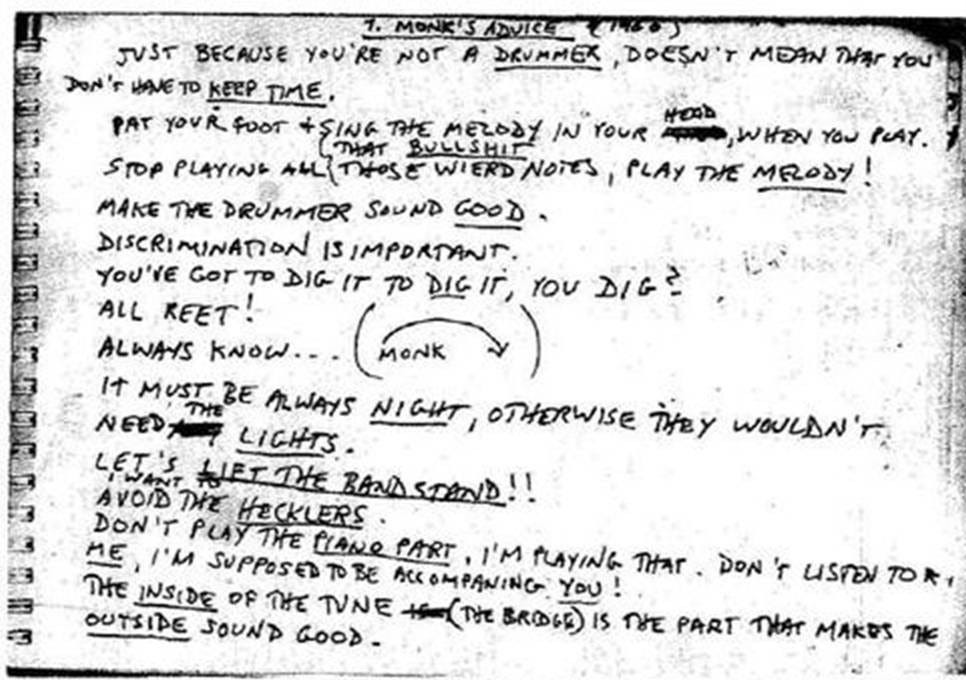 T. MONK'S ADVICE (1960)
JUST BECAUSE YOU'RE NOT A DRUMMER, DOESN'T MEAN THAT YOU
DON'T HAVE TO KEEP TIME.
PAT YOUR FOOT + SING THE MELODY IN YOUR HEAD, WHEN YOU PLAY.
THAT BULLSHIT
STOP PLAYING ALL THOSE WIERD NOTES, PLAY THE MELODY!
MAKE THE DRUMMER SOUND GOOD.
DISCRIMINATION IS IMPORTANT.
YOU'VE GOT TO DIG IT TO DIG IT, YOU DIG?
ALL REET!
ALWAYS KNOW... (MONK)
IT MUST BE ALWAYS NIGHT, OTHERWISE THEY WOULDN'T
NEED THE LIGHTS.
LET'S LIFT THE BANDSTAND!!
I WANT TO
AVOID THE HECKLERS.
DON'T PLAY THE PIANO PART, I'M PLAYING THAT. DON'T LISTEN TO
ME, I'M SUPPOSED TO BE ACCOMPANING YOU!
THE INSIDE OF THE TUNE (THE BRIDGE) IS THE PART THAT MAKES THE
OUTSIDE SOUND GOOD.